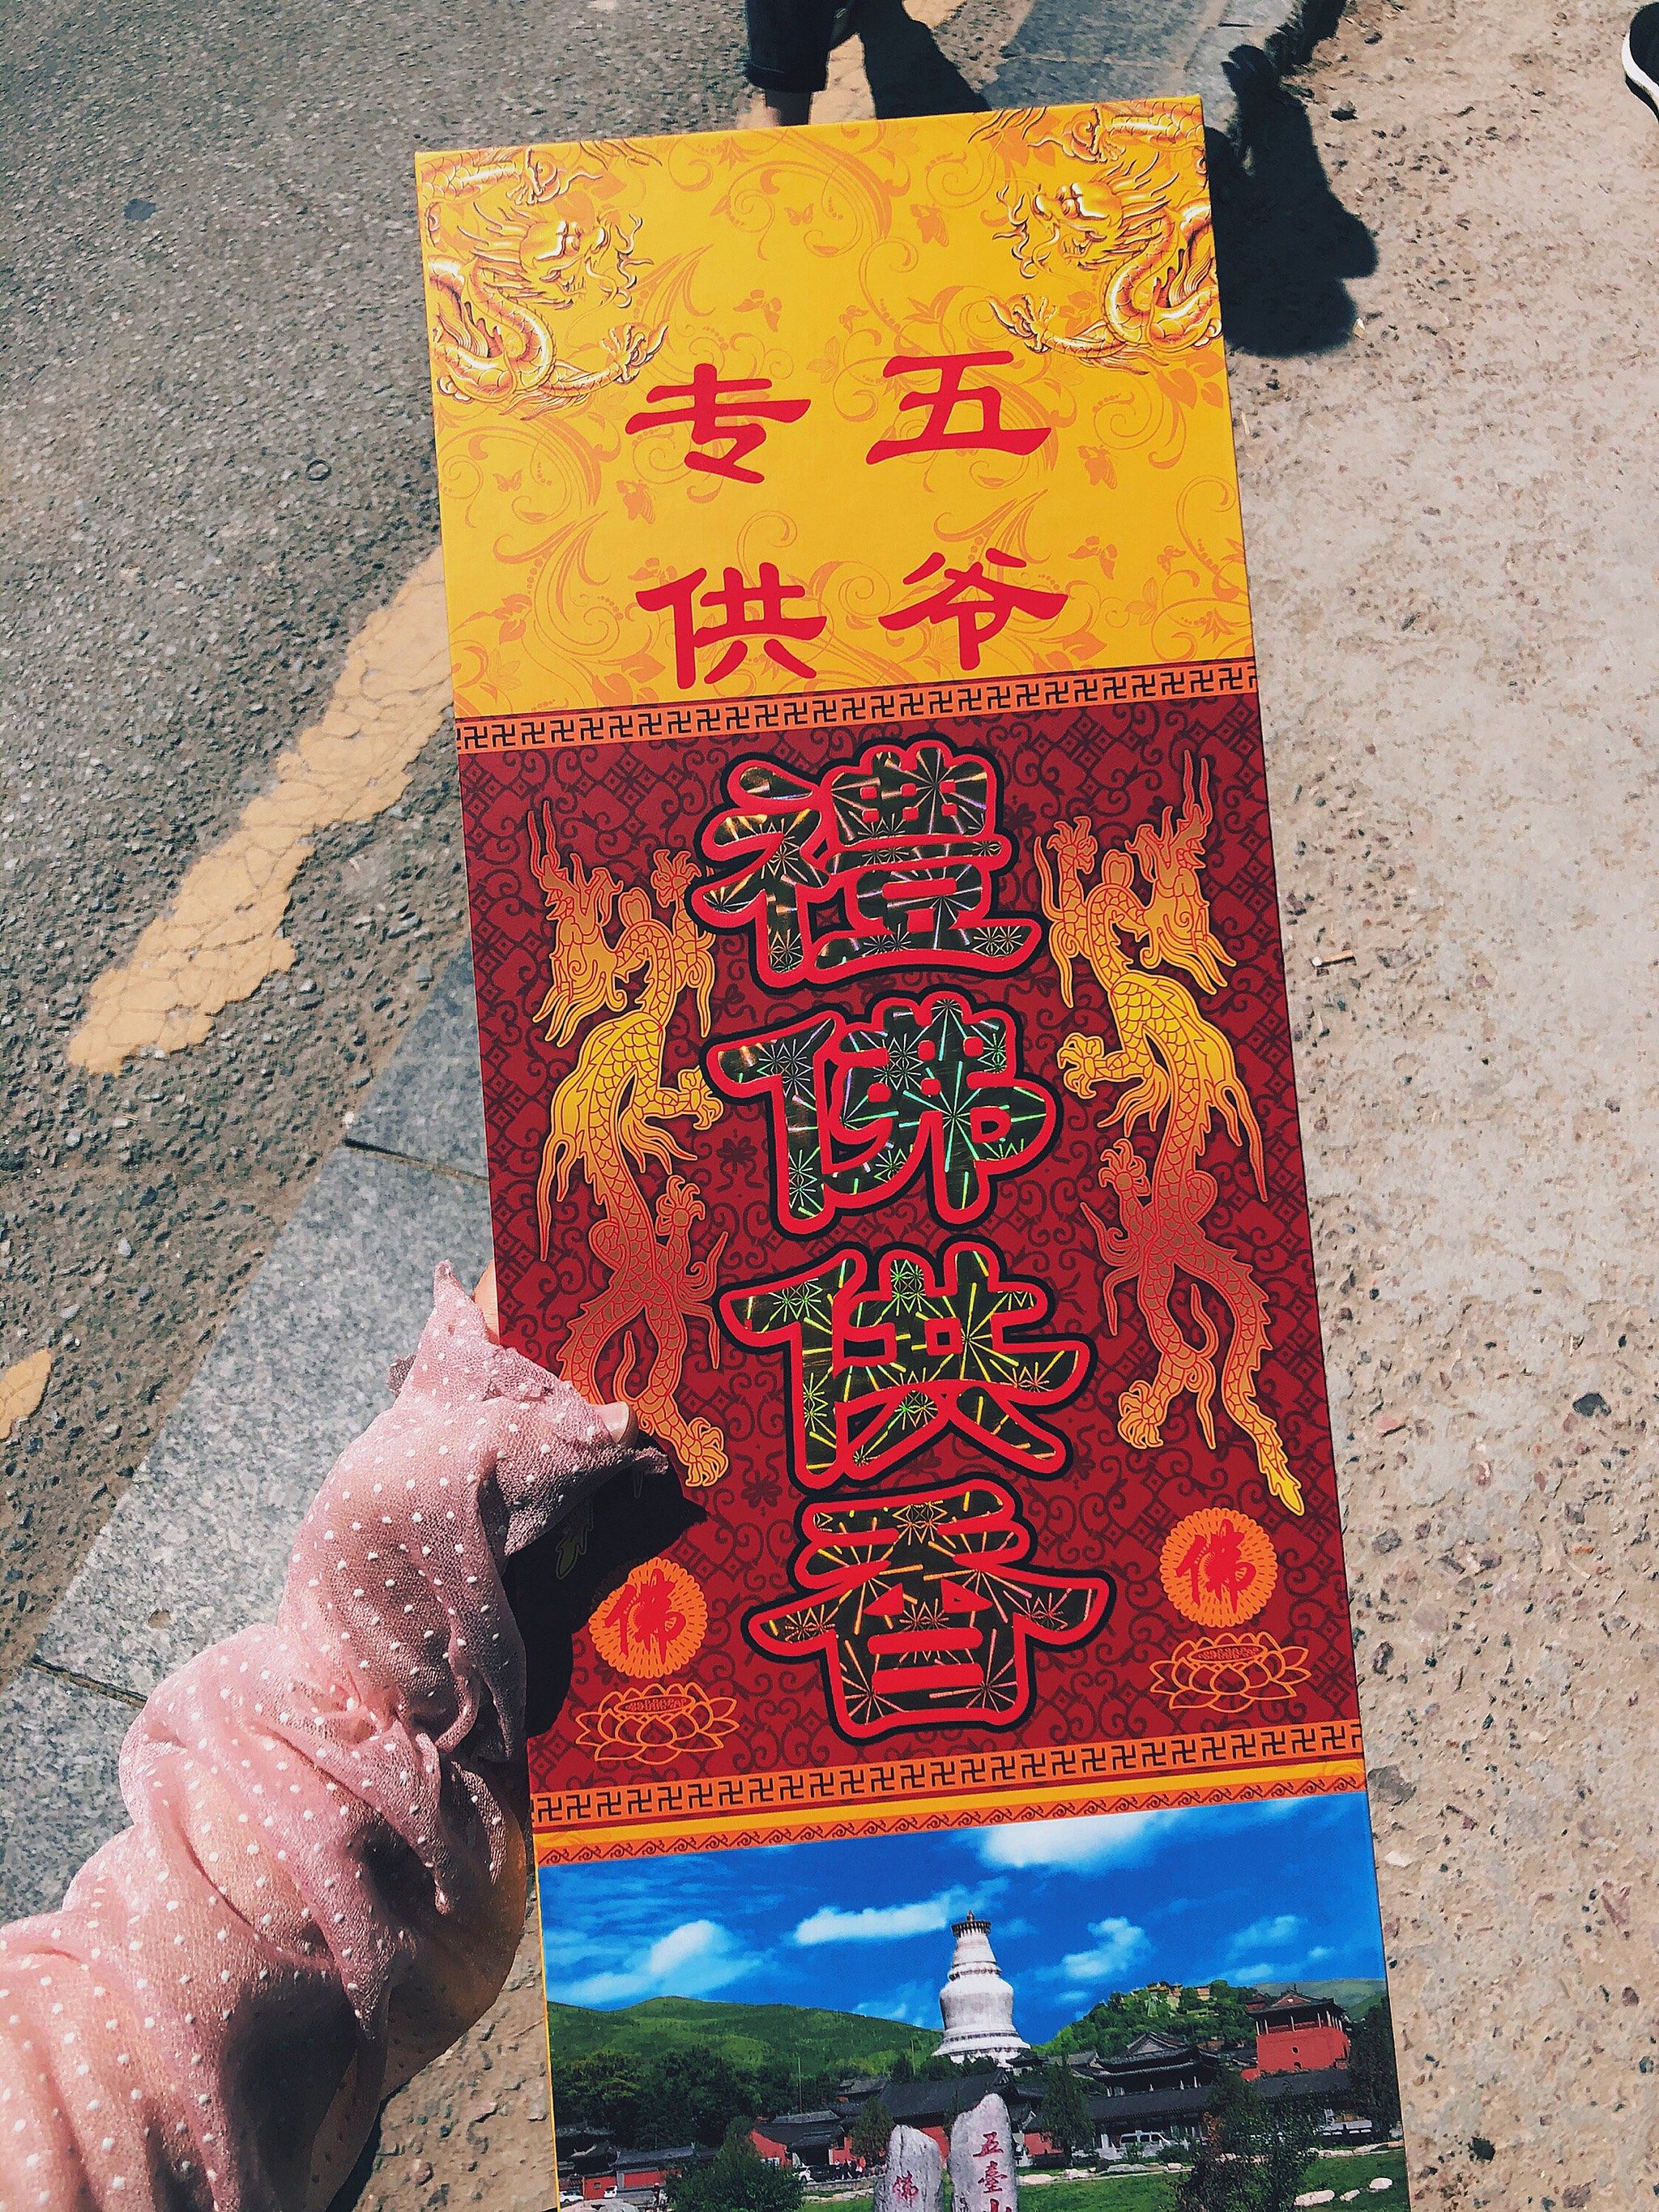 五爷
专供
禮佛供香
佛
佛
五臺山
佛